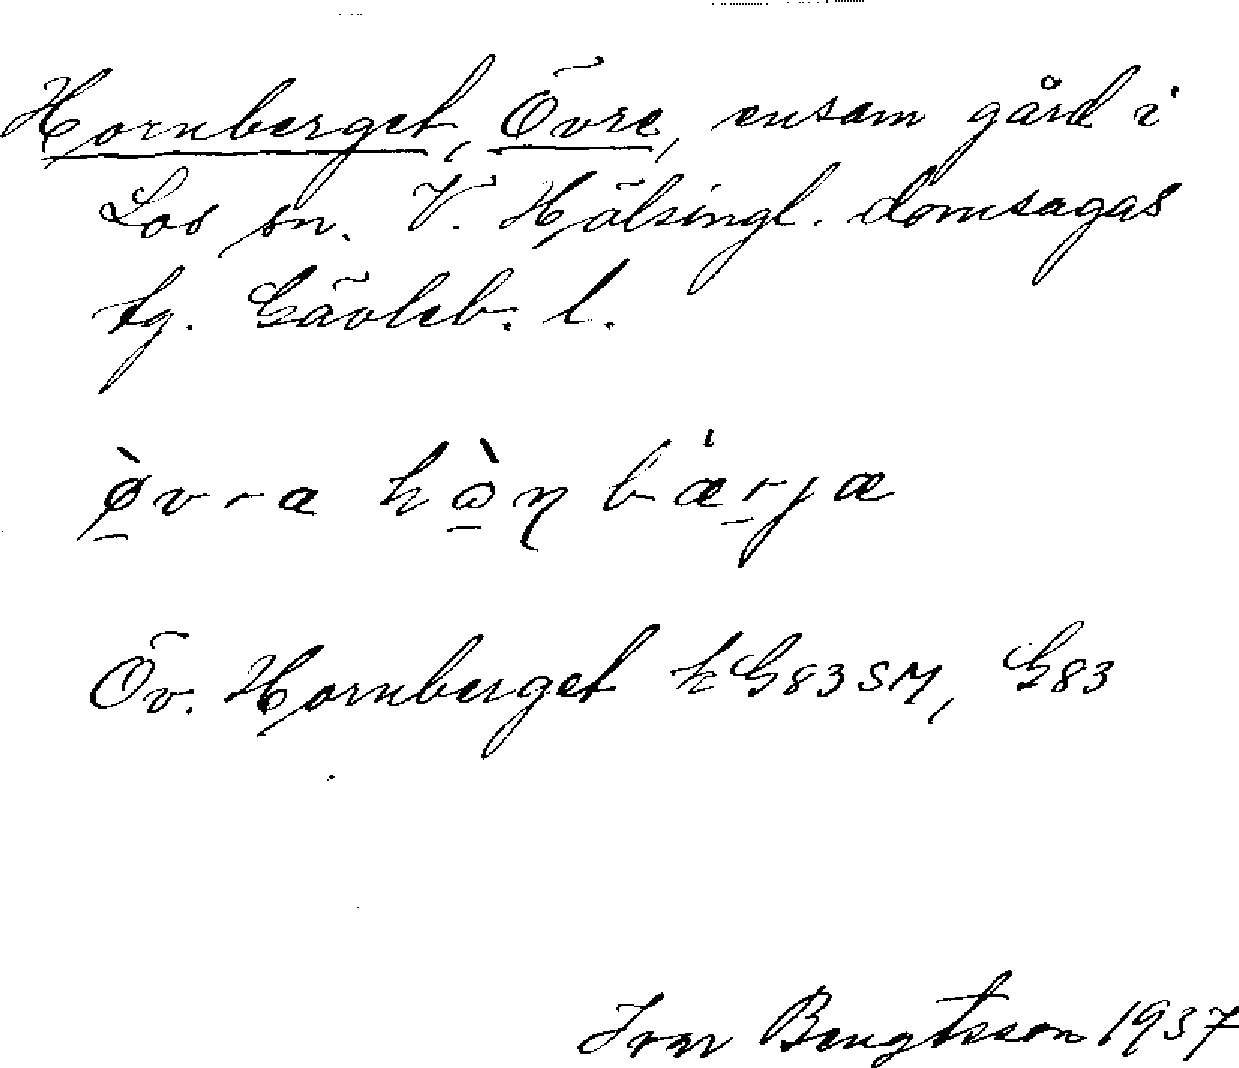 Hornberget, Övre, ensam gård i
Los sn. V. Hälsingl. domsagas
tg. Gävleb. l.
ø̠̀vra hɷ̠̀ɳ bæ̇r̠jæ
Öv. Hornberget kG83SM, G83
Ivar Bengtsson 1937